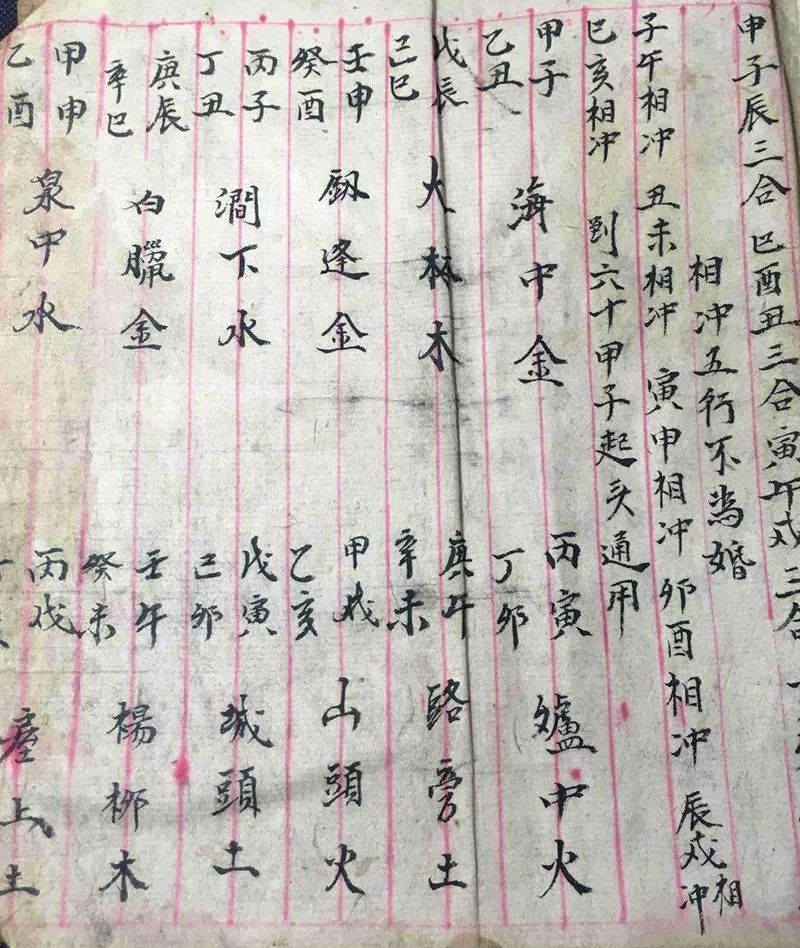 申子辰三合 巳酉丑三合 寅午戌三合
相冲五行不為婚
子午相冲 丑未相冲 寅申相冲 卯酉相冲 辰戌相冲
巳亥相冲 到六十甲子起头通用
甲子乙丑 海中金 丙寅丁卯 爐中火
戊辰己巳 大林木 庚午辛未 路旁土
壬申癸酉 剱逢金 甲戌乙亥 山頭火
丙子丁丑 澗下水 戊寅己卯 城頭土
庚辰辛巳 白臘金 壬午癸未 楊栁木
甲申乙酉 泉中水 丙戌丁 屋上土